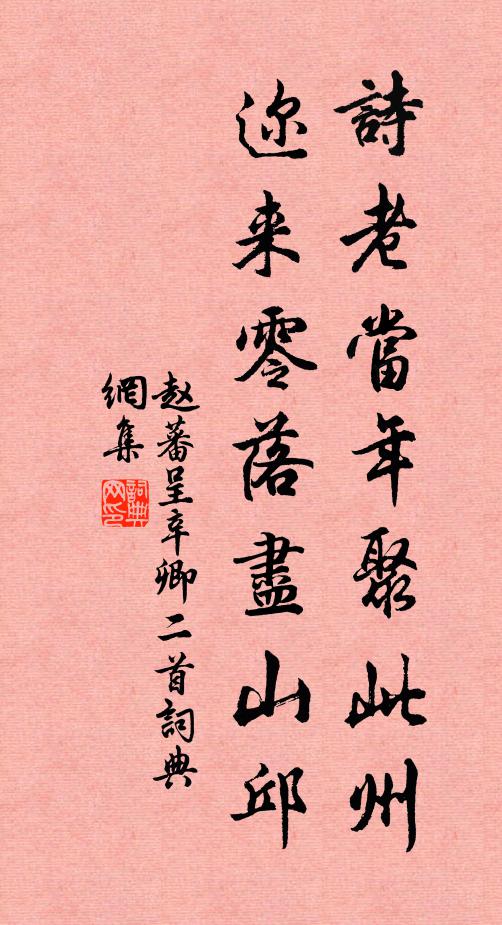 詩老當年聚此州
迩来零落盡山邱
赵蕃呈辛卿二首詞典
網集
詞典
网印